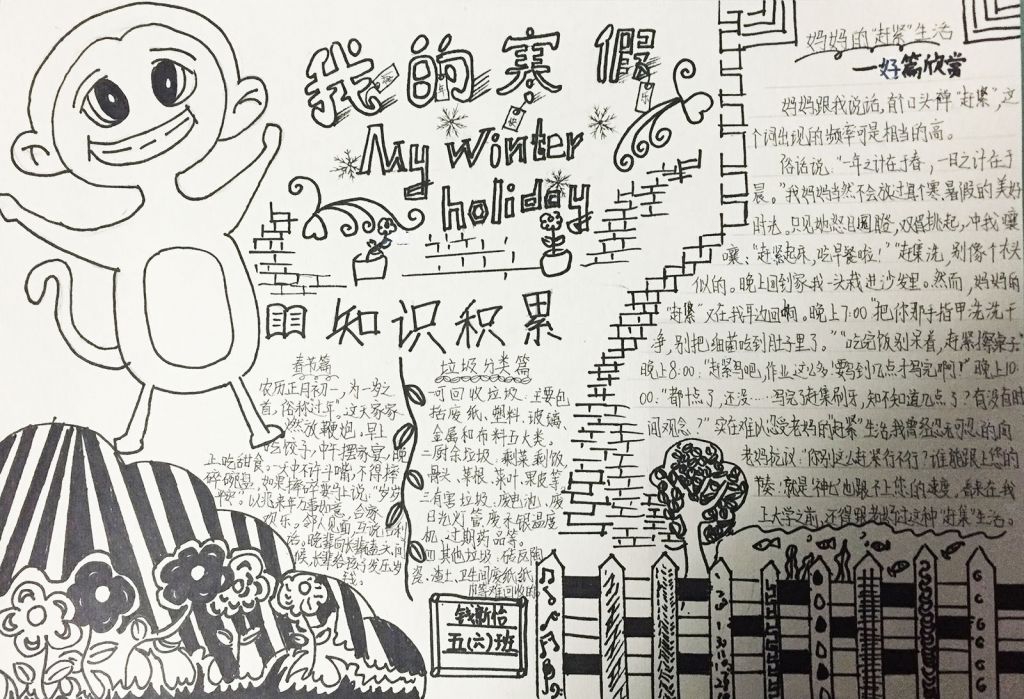 我的寒假
My winter
holiday
知识积累
春节篇
农历正月初一，为一岁之
首，俗称过年。这天家家
燃放鞭炮。早上
吃饺子，中午摆家宴，晚
上吃甜食。
碎碗具，如果摔碎要马上说："岁岁
平安"。以兆来年万事如意，合家
欢乐。邻人见面，互说吉利
话。晚辈向长辈拜天问
候，长辈给孩子发压岁
钱。
垃圾分类篇
一可回收垃圾．主要包
括废纸、塑料、玻璃、
金属和布料五大类。
二厨余垃圾．剩菜剩饭
骨头、菜根、菜叶、果皮等
三有害垃圾．废电池、废
日光灯管废水银温度
机、过期药品等。
四其他垃圾．砖瓦陶
瓷、渣土、卫生间废纸、纸
巾等难回收的
钱新怡
五(六)班
妈妈的"赶紧"生活
一好篇欣赏
妈妈跟我说话，有个口头禅"赶紧"，这
个词出现的频率可是相当的高。
俗话说："一年之计在于春，一日之计在于
晨。"我妈妈当然不会放过每个寒暑假的美好
时光。只见她怒目圆瞪，双眉挑起，冲我嚷
嚷："赶紧起床，吃早餐啦！""赶紧洗，别像个木头
似的。晚上回到家，我一头栽进沙发里。然而，妈妈的
"赶紧"又在我耳边回响。晚上7:00"把你那手指甲洗洗干
净，别把细菌吃到肚子里了。""吃完饭别呆着，赶紧擦桌子"
晚上8:00."赶紧写吧，作业这么多，要写到几点才写完啊！"晚上10:
00."都十点了，还没…写完了赶紧刷牙，知不知道几点了？有没有时
间观念？"实在难以忍受老妈的"赶紧"生活，我需经忍无可忍的向
老妈抗议："你别这么赶紧行不行？谁能跟上您的
节奏！就是'神七'也跟不上您的速度，看来在我
上大学之前，还得跟老妈过这种"赶紧"生活。